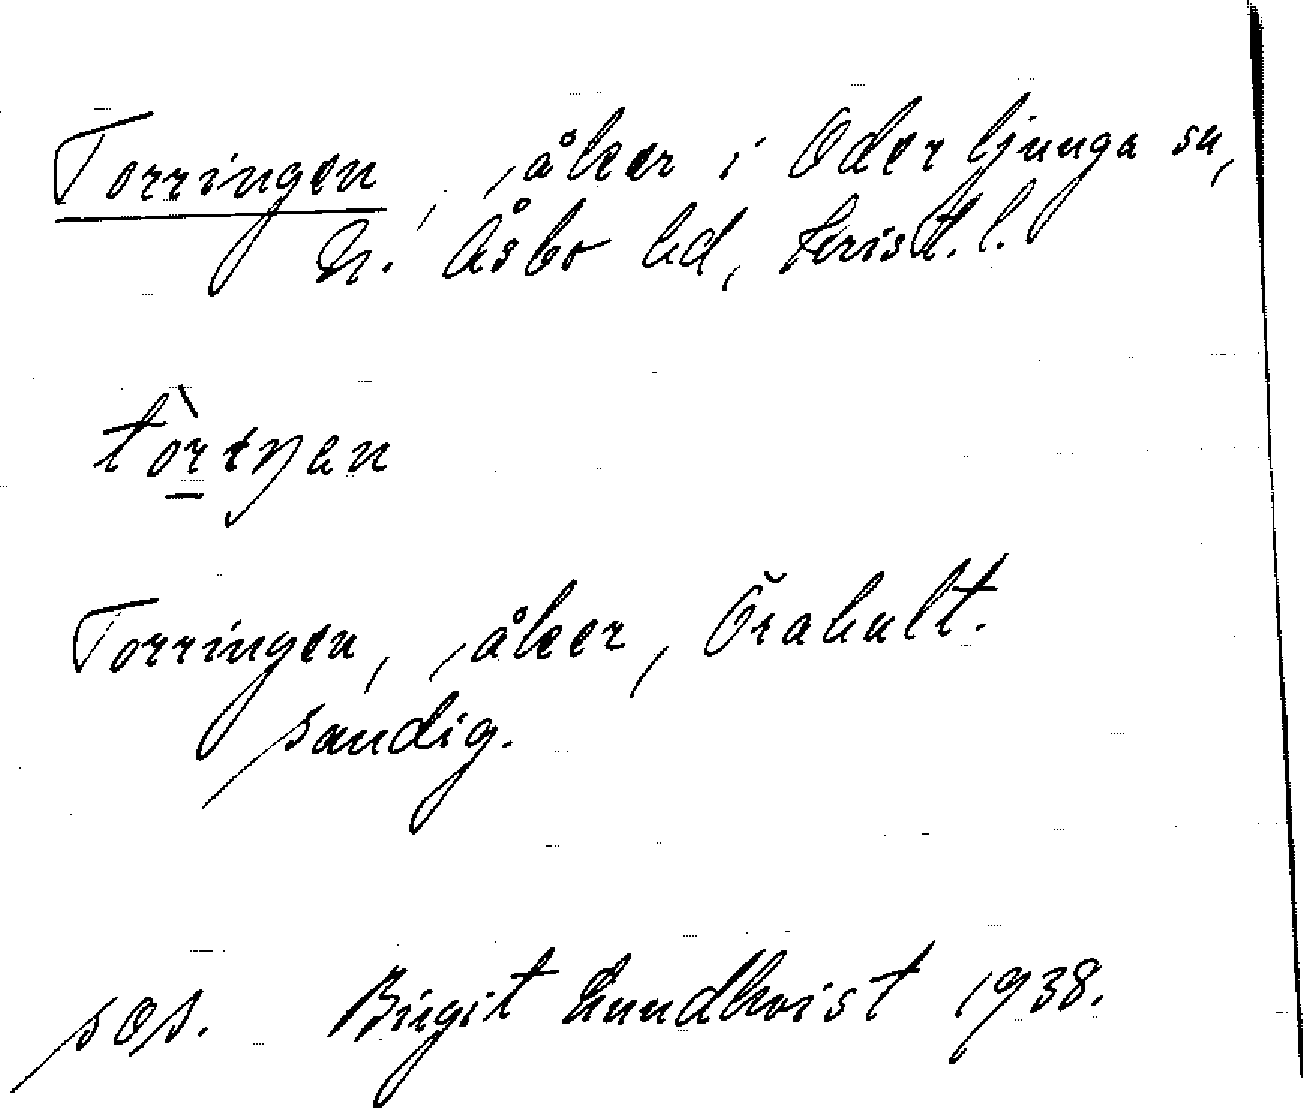 Torringen, åker i Oderljunga sn,
N. Åsbo hd, Krist. l.
tòrıŋen
Torringen, åker, Örahult.
sandig.
sos. Birgit Lundkvist 1938.